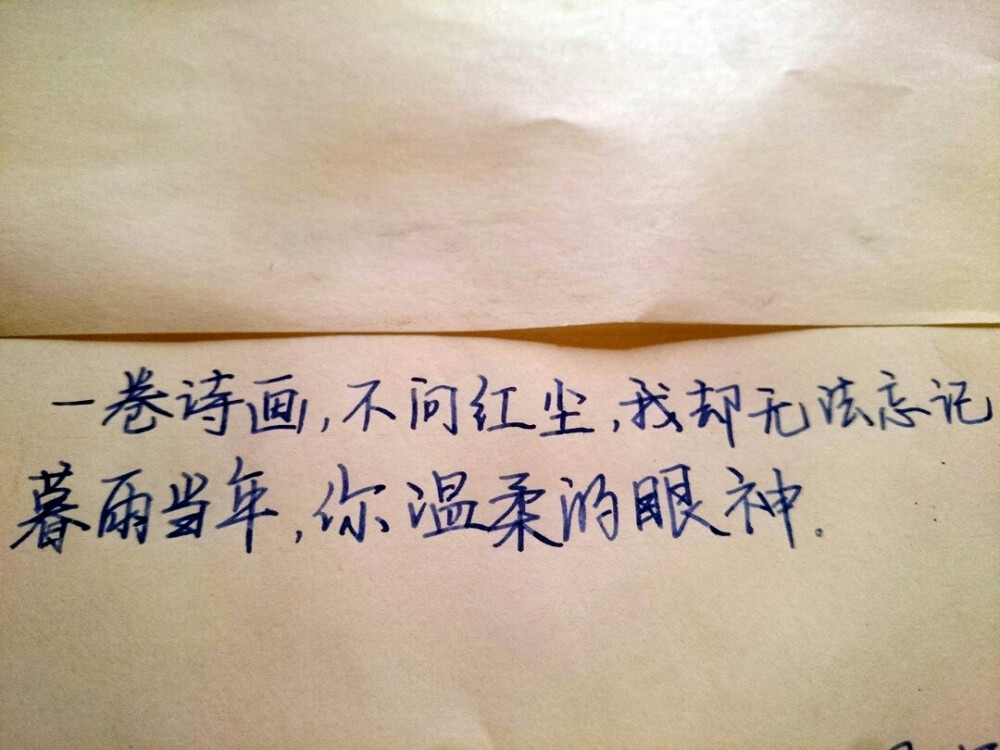 一卷诗画,不问红尘,我却无法忘记
暮雨当年,你温柔的眼神。